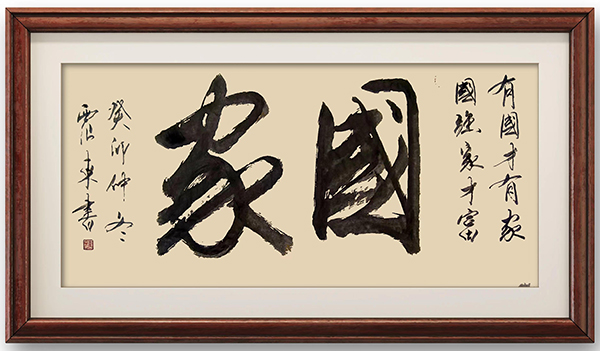 有國才有家
國强家才富
國家
癸卯仲冬
東書